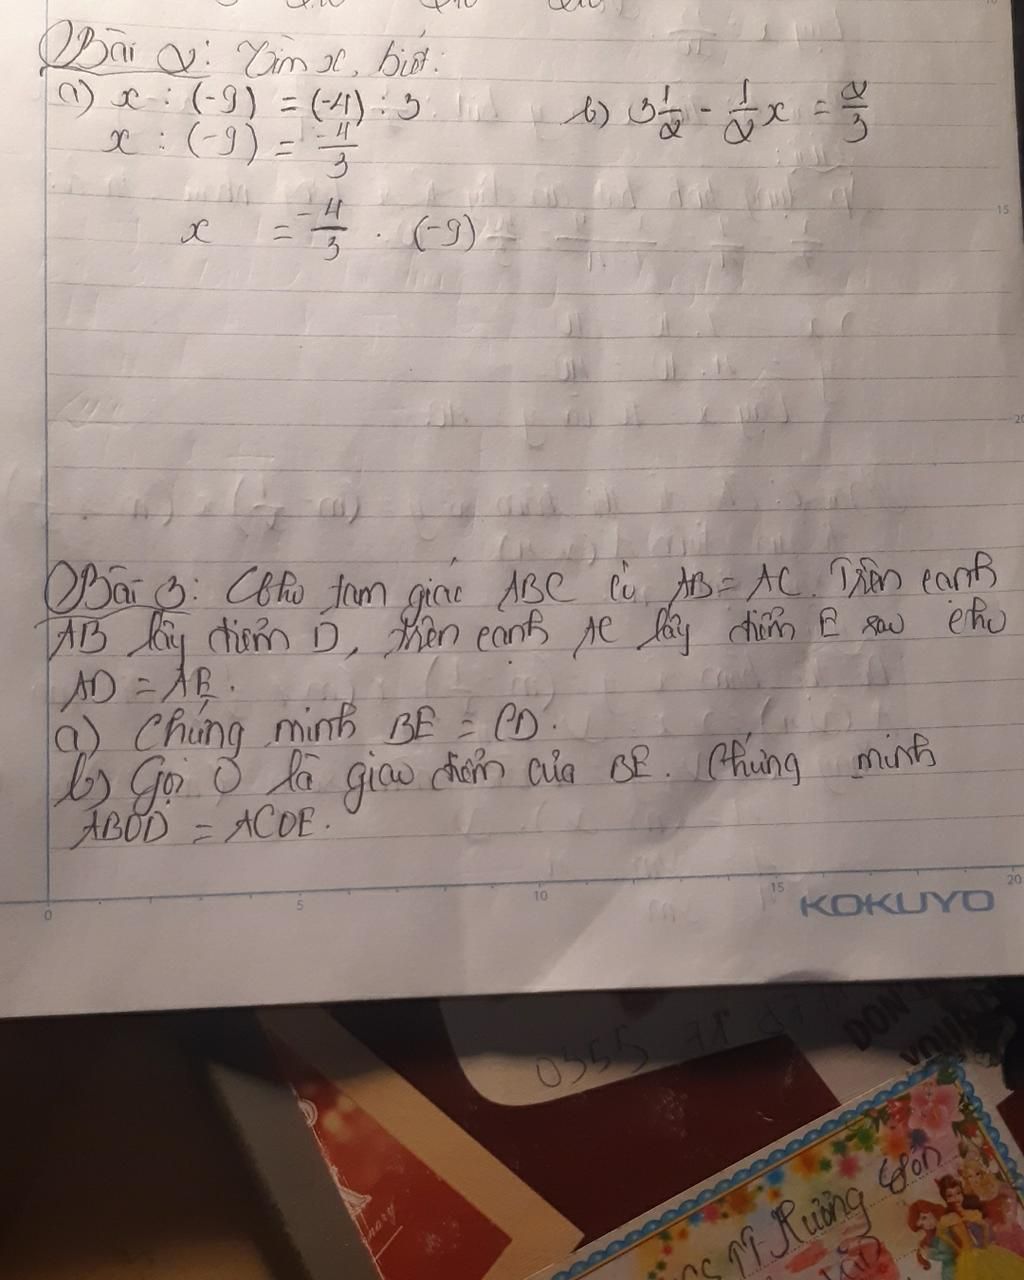 Bài 2: Tìm x, biết:
a) x : (-9) = (-4) : 3
b) 3 1/2 - 1/2 x = 2/3
x : (-9) = -4/3
x = -4/3 . (-9)
15
20
Bài 3: Cho tam giác ABC có AB = AC. Trên cạnh
AB lấy điểm D, trên cạnh AC lấy điểm E sao cho
AD = AE.
a) Chứng minh BE = CD.
b) Gọi O là giao điểm của BE. Chứng minh
ΔBOD = ΔCOE.
0 5 10 15 20
KOKUYO
0355
DON